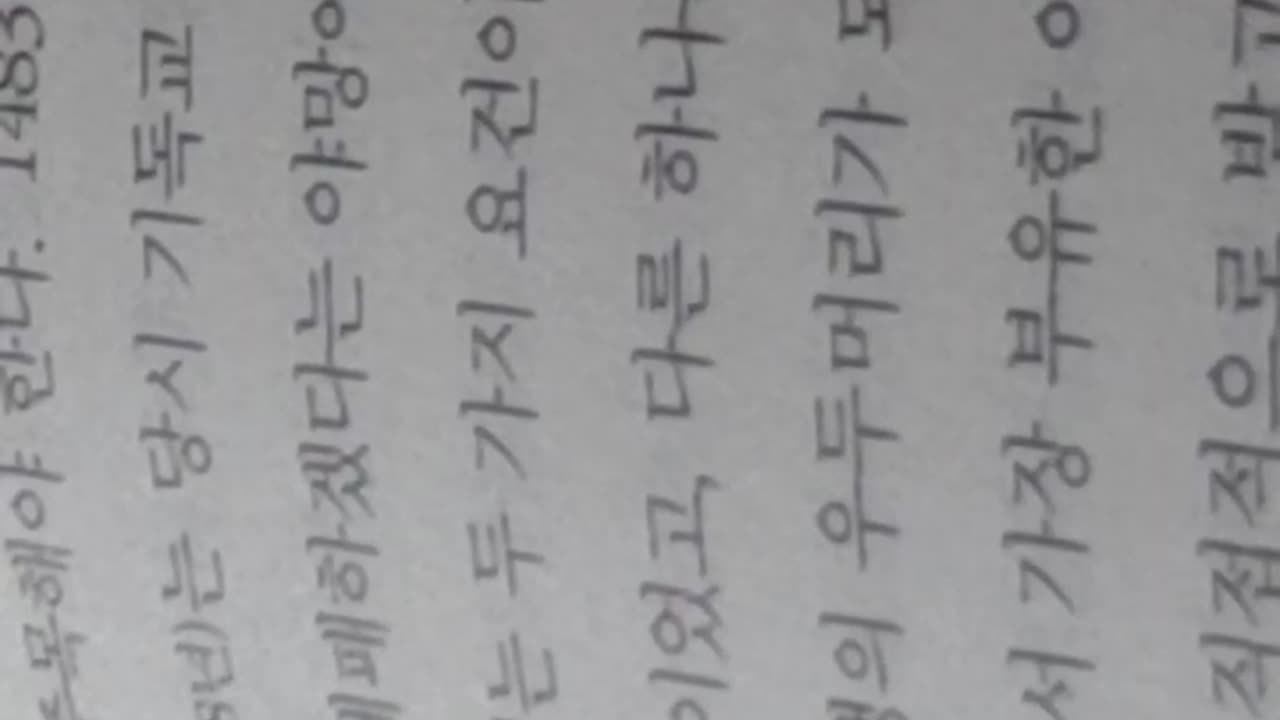 주목해야 한다. 1483
년)는 당시 기독교
제패하겠다는 야망
는 두 가지 요건이
이 있고, 다른 하나
의 우두머리가
서 가장 부유한
직접적으로 받고